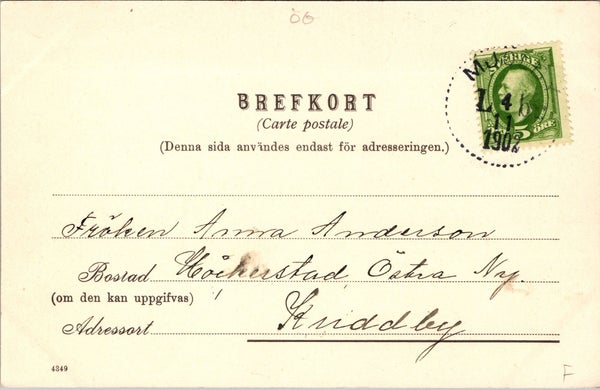 ÖG
SVERIGE
L 4 1
11
1902
5 ÖRE
BREFKORT
(Carte postale)
(Denna sida användes endast för adresseringen.)
Fröken Anna Anderson
Bostad Höckerstad, Östra Ny.
(om den kan uppgifvas)
Adressort Kuddby
4349
F